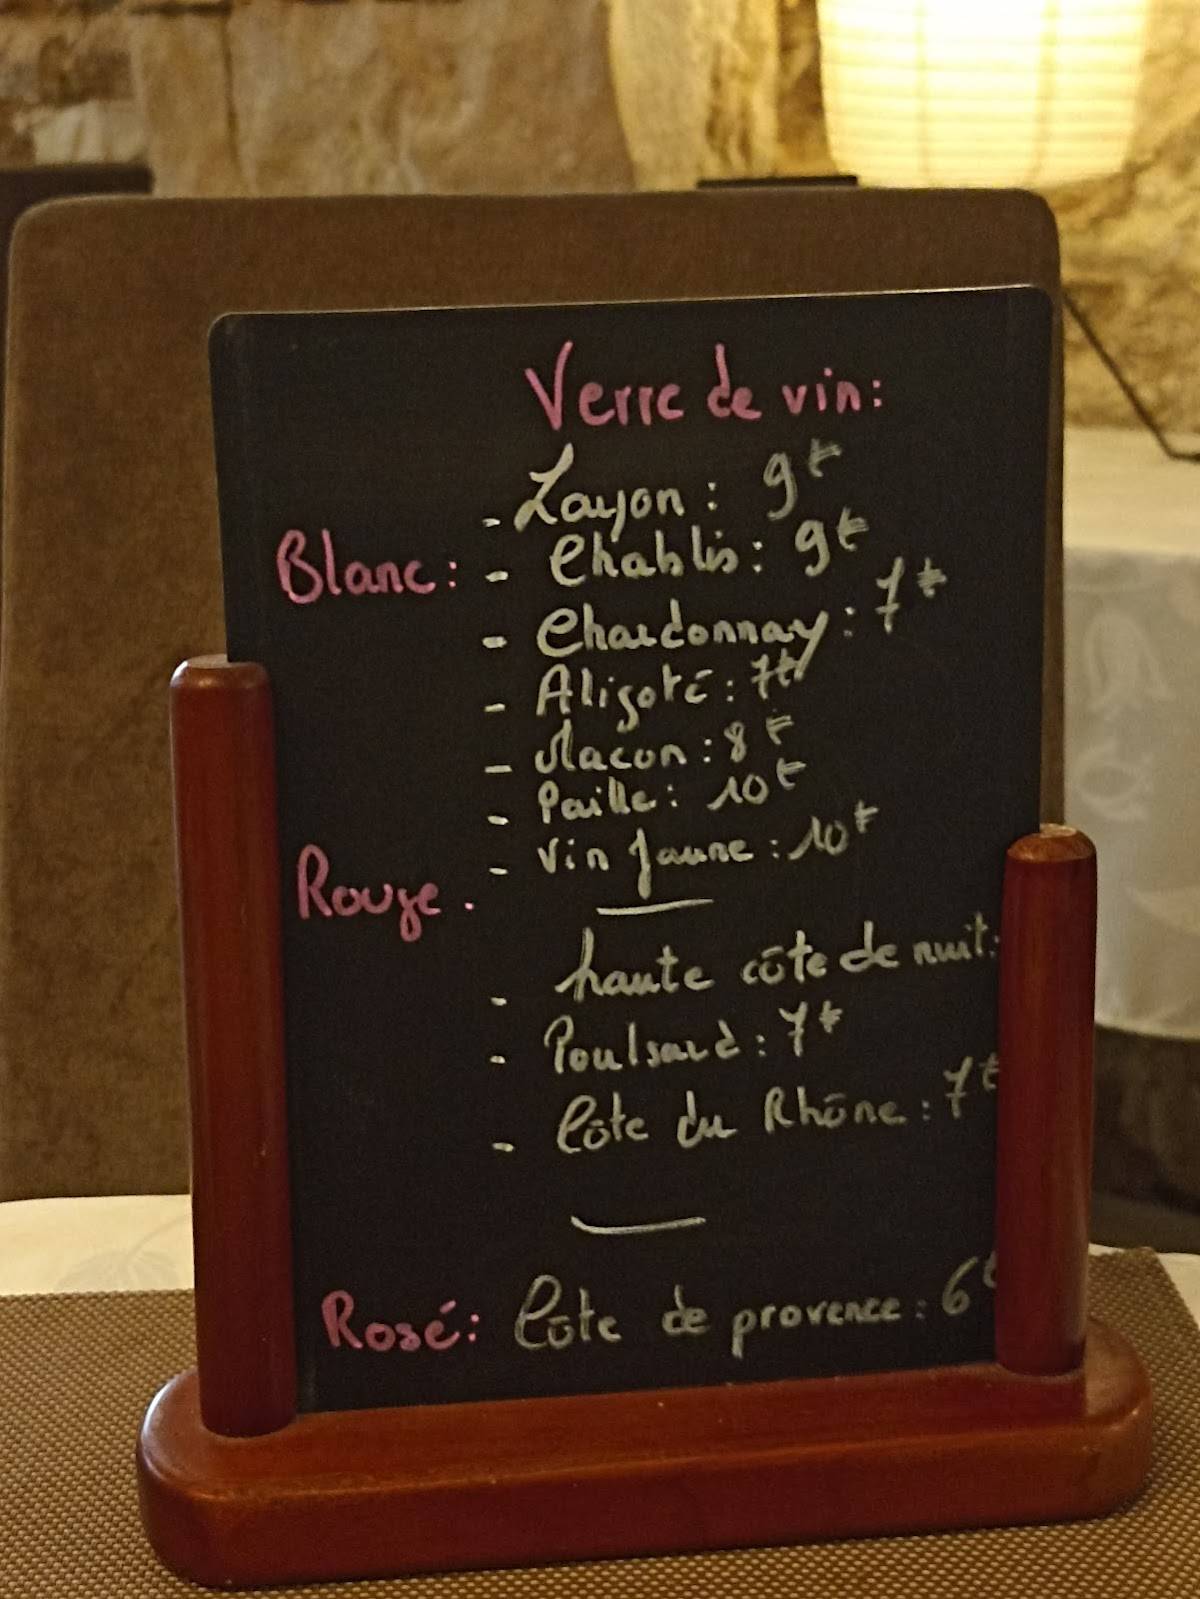 Verre de vin:
- Layon: 9€
Blanc: - Chablis: 9€
- Chardonnay: 7€
- Aligoté: 7€
- Macon: 8€
- Paille: 10€
- Vin Jaune: 10€
Rouge.
- haute côte de nuit:
- Poulsard: 7€
- Côte du Rhône: 7€
Rosé: Côte de provence: 6€